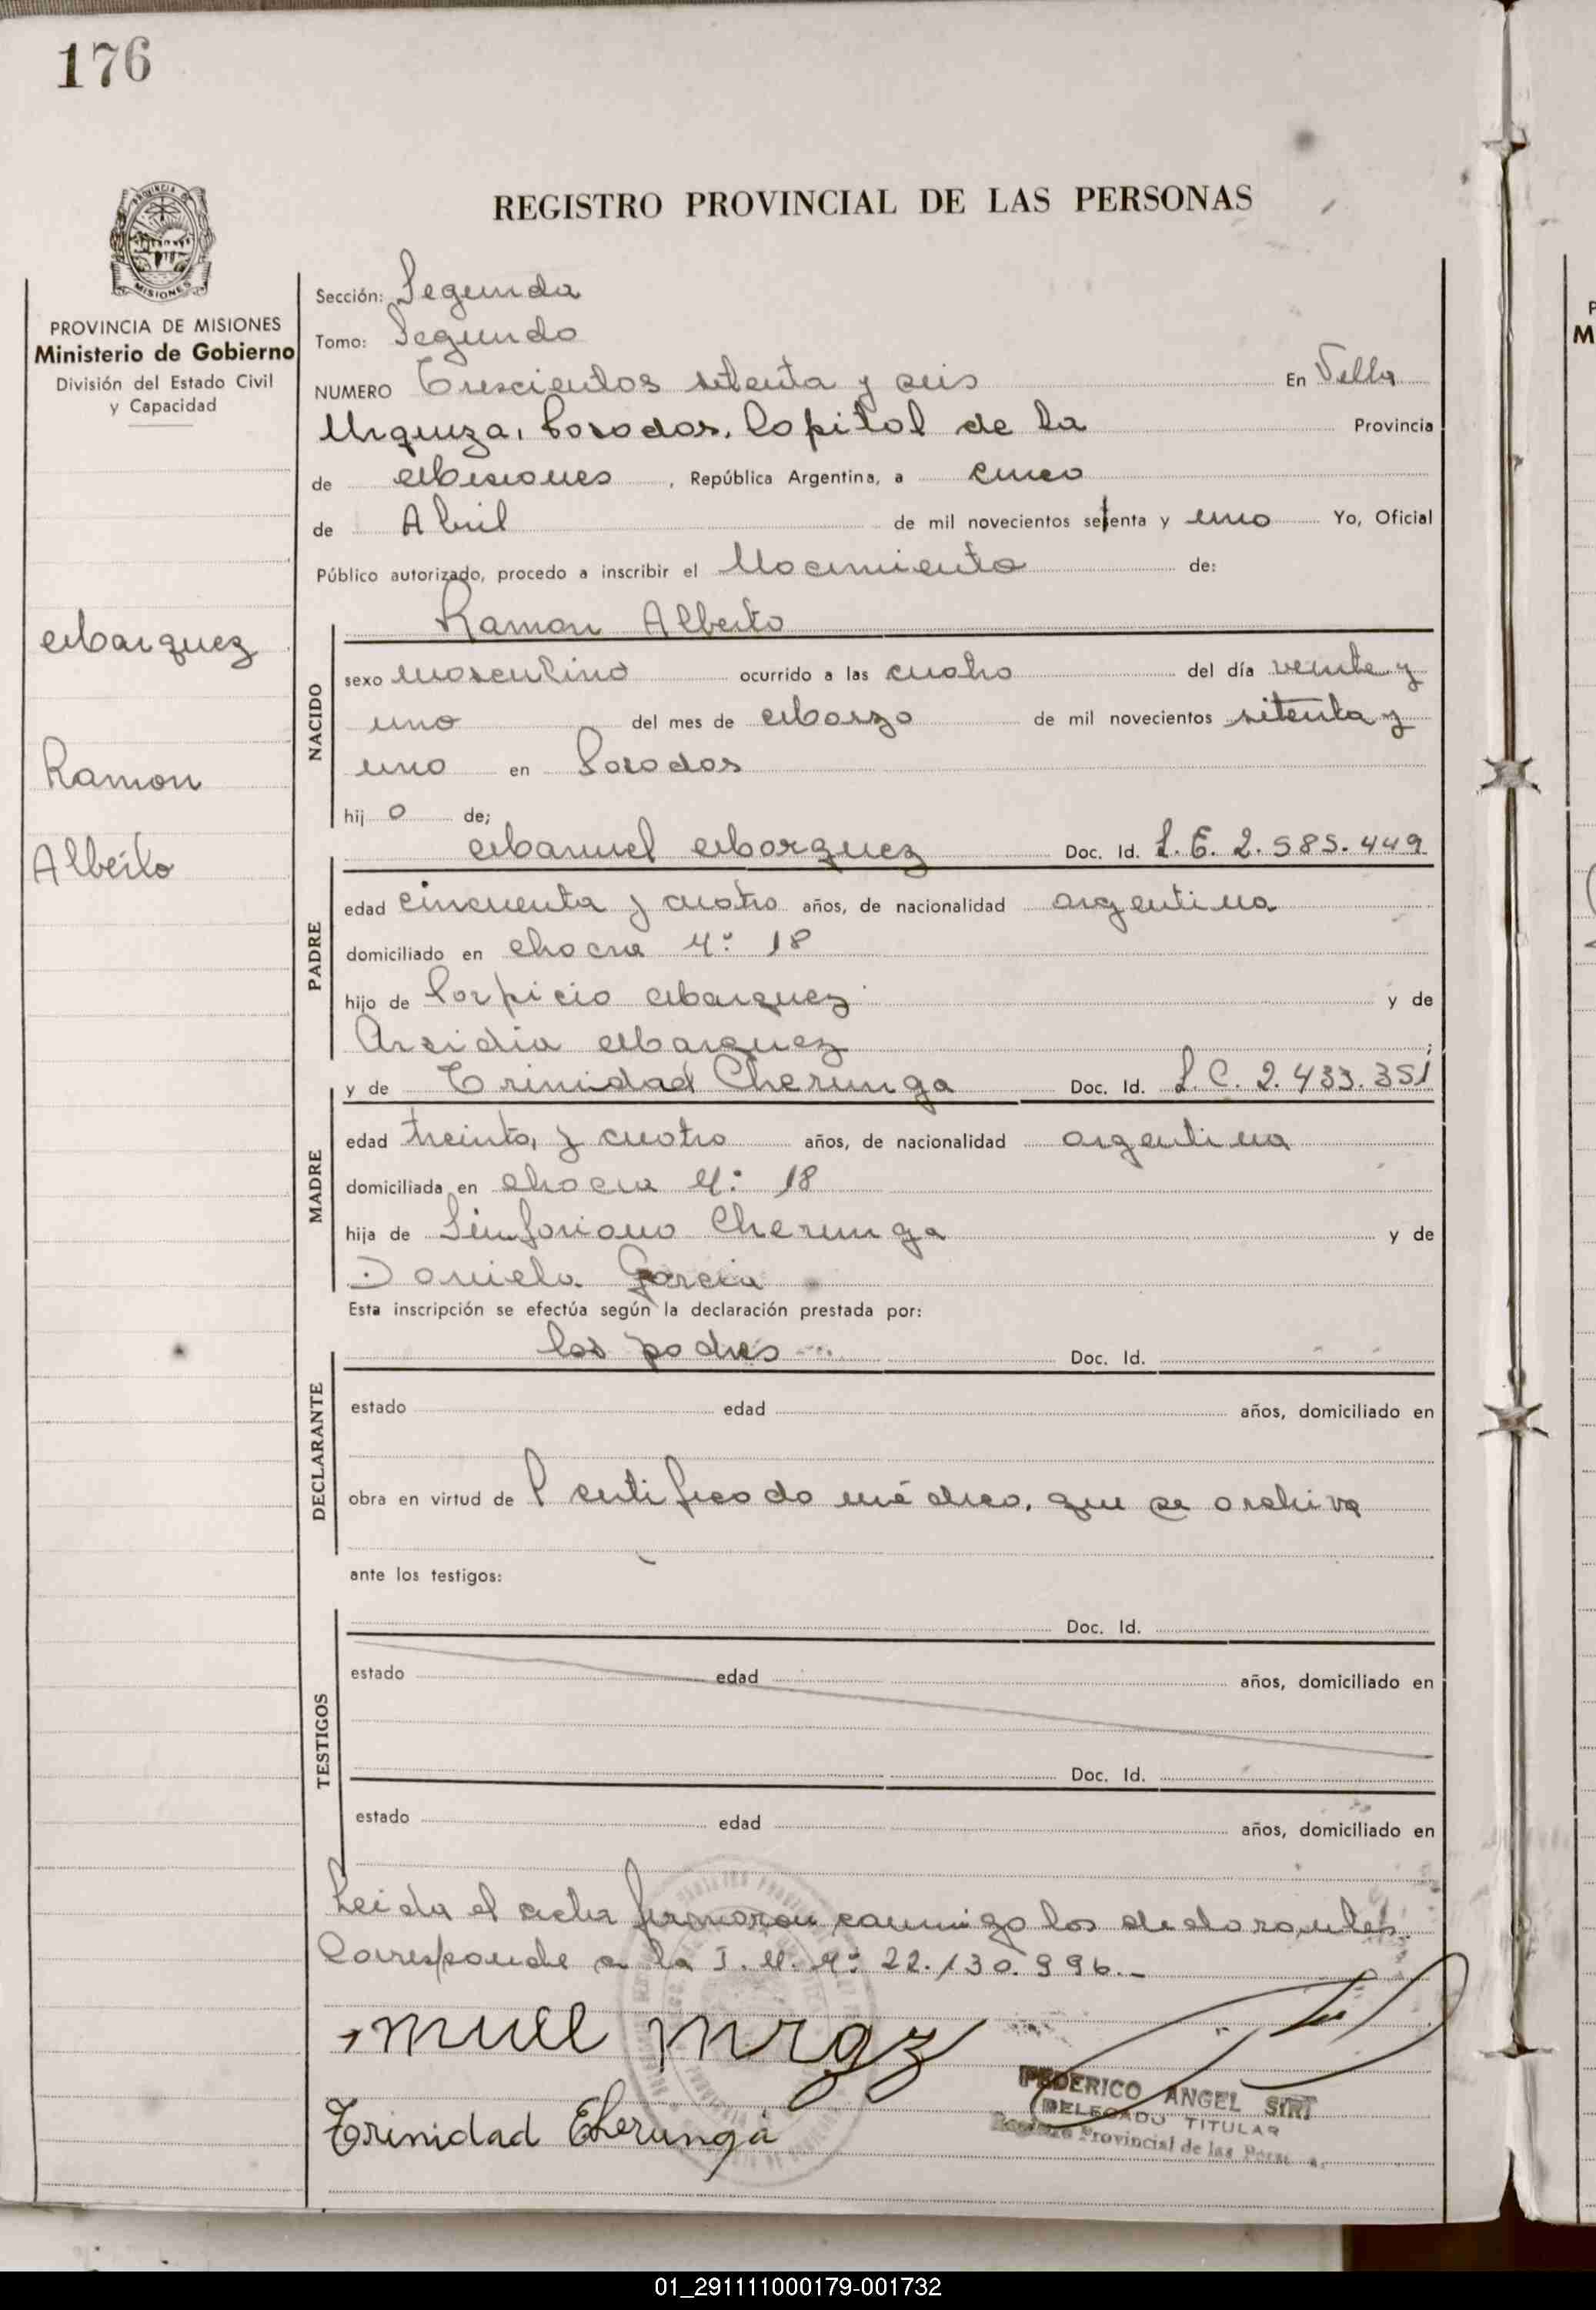 176
REGISTRO PROVINCIAL DE LAS PERSONAS
MISIONES
PROVINCIA DE MISIONES
Ministerio de Gobierno
División del Estado Civil
y Capacidad
Marquez
Ramon
Alberto
Sección: Segunda
Tomo: Segundo
NUMERO Trescientos setenta y seis En Villa
Urquiza, Posadas, Capital de la Provincia
de Misiones, República Argentina, a cinco
de Abril de mil novecientos setenta y uno Yo, Oficial
Público autorizado, procedo a inscribir el Nacimiento de:
Ramon Alberto
NACIDO
sexo masculino ocurrido a las cuatro del día veinte y
uno del mes de Marzo de mil novecientos setenta y
uno en Posadas
hijo de;
Manuel Marquez Doc. Id. L.E. 2.585.449
PADRE
edad cincuenta y cuatro años, de nacionalidad argentina
domiciliado en chacra Nº 18
hijo de Porpicio Marquez y de
Arsidia Marquez;
y de Trinidad Cherunga Doc. Id. L.C. 2.433.351
MADRE
edad treinta y cuatro años, de nacionalidad argentina
domiciliada en chacra Nº 18
hija de Sinforiano Cherunga y de
Daniela Garcia
Esta inscripción se efectúa según la declaración prestada por:
los padres Doc. Id.
DECLARANTE
estado edad años, domiciliado en
obra en virtud de Certificado médico, que se archiva
ante los testigos:
Doc. Id.
TESTIGOS
estado edad años, domiciliado en
Doc. Id.
estado edad años, domiciliado en
Leida el acta firmaron conmigo los declarantes.
Corresponde a la I. N. Nº 22.130.996.-
Trinidad Cherunga
FEDERICO ANGEL SIRI
DELEGADO TITULAR
Registro Provincial de las Personas
01_291111000179-001732